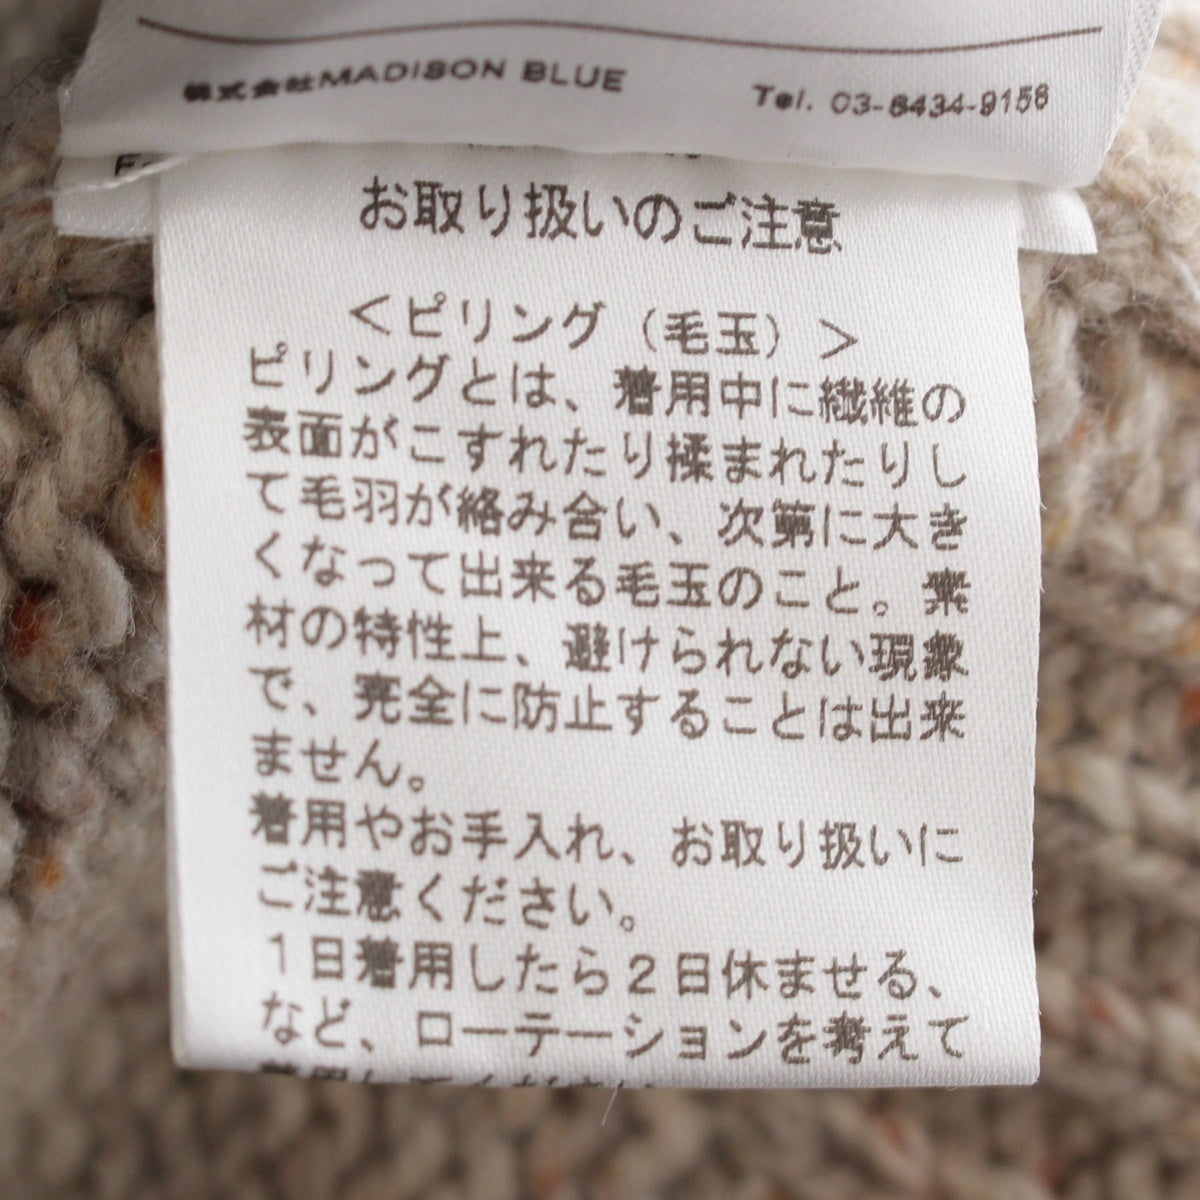 株式会社MADISON BLUE Tel. 03-6434-9156
お取り扱いのご注意
＜ピリング（毛玉）＞
ピリングとは、着用中に繊維の
表面がこすれたり揉まれたりし
て毛羽が絡み合い、次第に大き
くなって出来る毛玉のこと。素
材の特性上、避けられない現象
で、完全に防止することは出来
ません。
着用やお手入れ、お取り扱いに
ご注意ください。
１日着用したら２日休ませる、
など、ローテーションを考えて